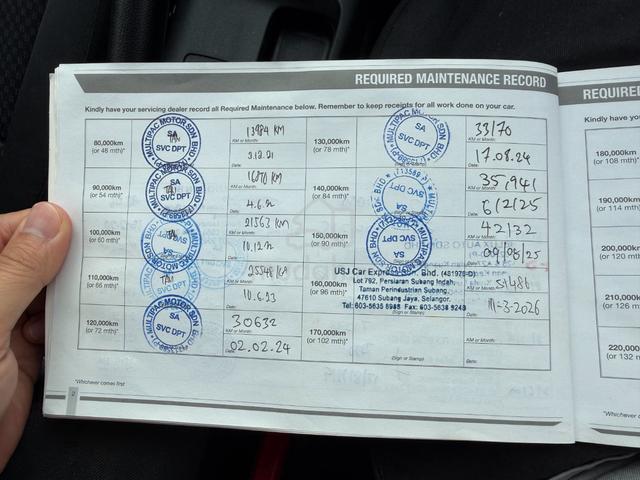 REQUIRED MAINTENANCE RECORD
Kindly have your servicing dealer record all Required Maintenance below. Remember to keep receipts for all work done on your car.
80,000km
(or 48 mth)*
MULTIPAC MOTOR SDN BHD
SA
SVC DPT
13984 KM
KM or Month:
3.12.21
Date:
90,000km
(or 54 mth)*
MULTIPAC MOTOR SDN BHD
SA
SVC DPT
KM or Month:
4.6.22
Date:
100,000km
(or 60 mth)*
SVC DPT
21563 KM
KM or Month:
10.12.22
Date:
110,000km
(or 66 mth)*
25548 KM
KM or Month:
10.6.23
Date:
120,000km
(or 72 mth)*
MULTIPAC MOTOR SDN BHD
SA
SVC DPT
30632
KM or Month:
02.02.24
Date:
130,000km
(or 78 mth)*
SA
SVC DPT
33170
KM or Month:
17.08.24
Date:
140,000km
(or 84 mth)*
SA
SVC DPT
35,941
KM or Month:
6/2/25
Date:
150,000km
(or 90 mth)*
SA
SVC DPT
42132
KM or Month:
09/08/25
Date:
160,000km
(or 96 mth)*
USJ Car Bhd. (481976-D)
Lot 792, Persiaran Subang Indah,
Taman Perindustrian Subang,
47610 Subang Jaya, Selangor.
Tel: 603-5635 8948 Fax: 603-5638 9248
(Sign or Stamp)
51486
KM or Month:
11-3-2026
Date:
170,000km
(or 102 mth)*
(Sign or Stamp)
KM or Month:
Date:
*Whichever comes first
2
REQUIRED
Kindly have yo
180,000km
(or 108 mth)*
190,000km
(or 114 mth)*
200,000
(or 120 mt
210,000
(or 126 m
220,00
(or 132
*Whichever